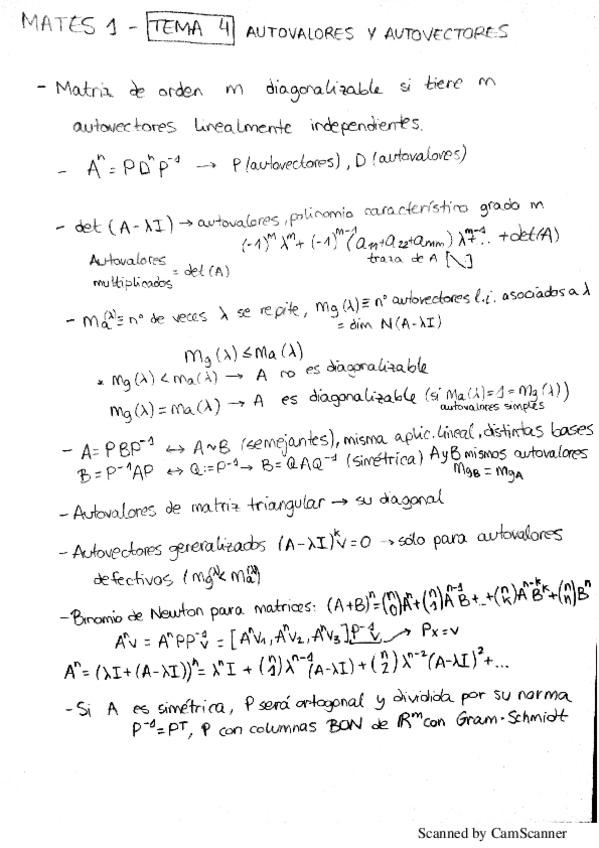 MATES 1 - TEMA 4 AUTOVALORES Y AUTOVECTORES
- Matriz de orden m diagonalizable si tiene m
autovectores linealmente independientes.
- Aⁿ = PDⁿP⁻¹ → P (autovectores), D (autovalores)
- det (A-λI) → autovalores, polinomio característico grado m
(-1)ᵐ λᵐ + (-1)ᵐ⁻¹ (a₁₁+a₂₂+aₘₘ) λᵐ⁻¹+.. + det(A)
Autovalores multiplicados = det (A)
traza de A [\]
- Ma(λ) ≡ nº de veces λ se repite, Mg(λ) ≡ nº autovectores l.i. asociados a λ
= dim N(A-λI)
Mg (λ) ≤ Ma (λ)
* Mg (λ) < Ma (λ) → A no es diagonalizable
Mg (λ) = Ma (λ) → A es diagonalizable (si Ma (λ) = 1 = Mg (λ))
autovalores simples
- A = PBP⁻¹ ↔ A~B (semejantes), misma aplic. lineal, distintas bases
B = P⁻¹AP ↔ Q := P⁻¹ → B = QAQ⁻¹ (simétrica) A y B mismos autovalores
MgB = MgA
- Autovalores de matriz triangular → su diagonal
- Autovectores generalizados (A-λI)ᵏv = 0 → sólo para autovalores
defectivos (Mg(λ) < Ma(λ))
- Binomio de Newton para matrices: (A+B)ⁿ = (n 0)Aⁿ + (n 1)Aⁿ⁻¹B + .. + (n k)Aⁿ⁻ᵏBᵏ + (n n)Bⁿ
Aⁿv = AⁿPP⁻¹v = [Aⁿv₁, Aⁿv₂, Aⁿv₃] P⁻¹v → Px = v
Aⁿ = (λI + (A-λI))ⁿ = λⁿI + (n 1)λⁿ⁻¹(A-λI) + (n 2)λⁿ⁻²(A-λI)² + ...
- Si A es simétrica, P será ortogonal y dividida por su norma
P⁻¹ = PT, P con columnas BON de ℝᵐ con Gram-Schmidt
Scanned by CamScanner